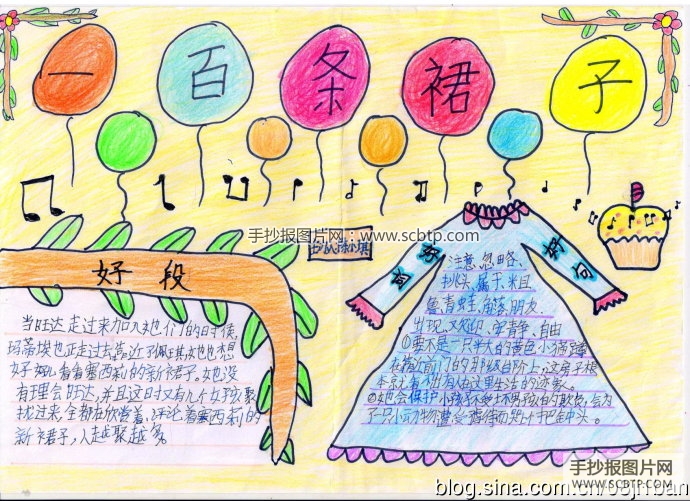 一百条裙子
手抄报图片网：www.scbtp.com
好段
当旺达走过来加入她们的时候，
玛蒂埃也正走过去靠近了佩姬，她也想
好好看看塞西莉的新裙子。她没
有理会旺达，并且这时又有几个女孩聚
拢过来，全都在欣赏着、评论着塞西莉的
新裙子，人越聚越多。
好词
好句
注意、忽略、
挑头、属于、粗
鲁、青蛙、邮
朋友、
出现
自由
①要不是一只半大的黄色小猫蹲
在
前门的那级台阶上，这房子根
本就
有人在这里生活的迹象。
②她会保护小孩子不
男孩的欺负，会为
了只小动物遭受虐待而哭
手抄报图片网
WWW.SCBTP.COM